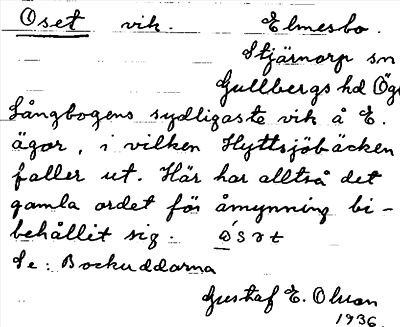 Oset vik. Elmesbo.
Stjärnorp sn
Gullbergs hd Ög
Långbogens sydligaste vik å E.
ägor, i vilken Hyttsjöbäcken
faller ut. Här har alltså det
gamla ordet för åmynning bi-
behållit sig.
Se: Bockuddarna
Gustaf E. Olson
1936.